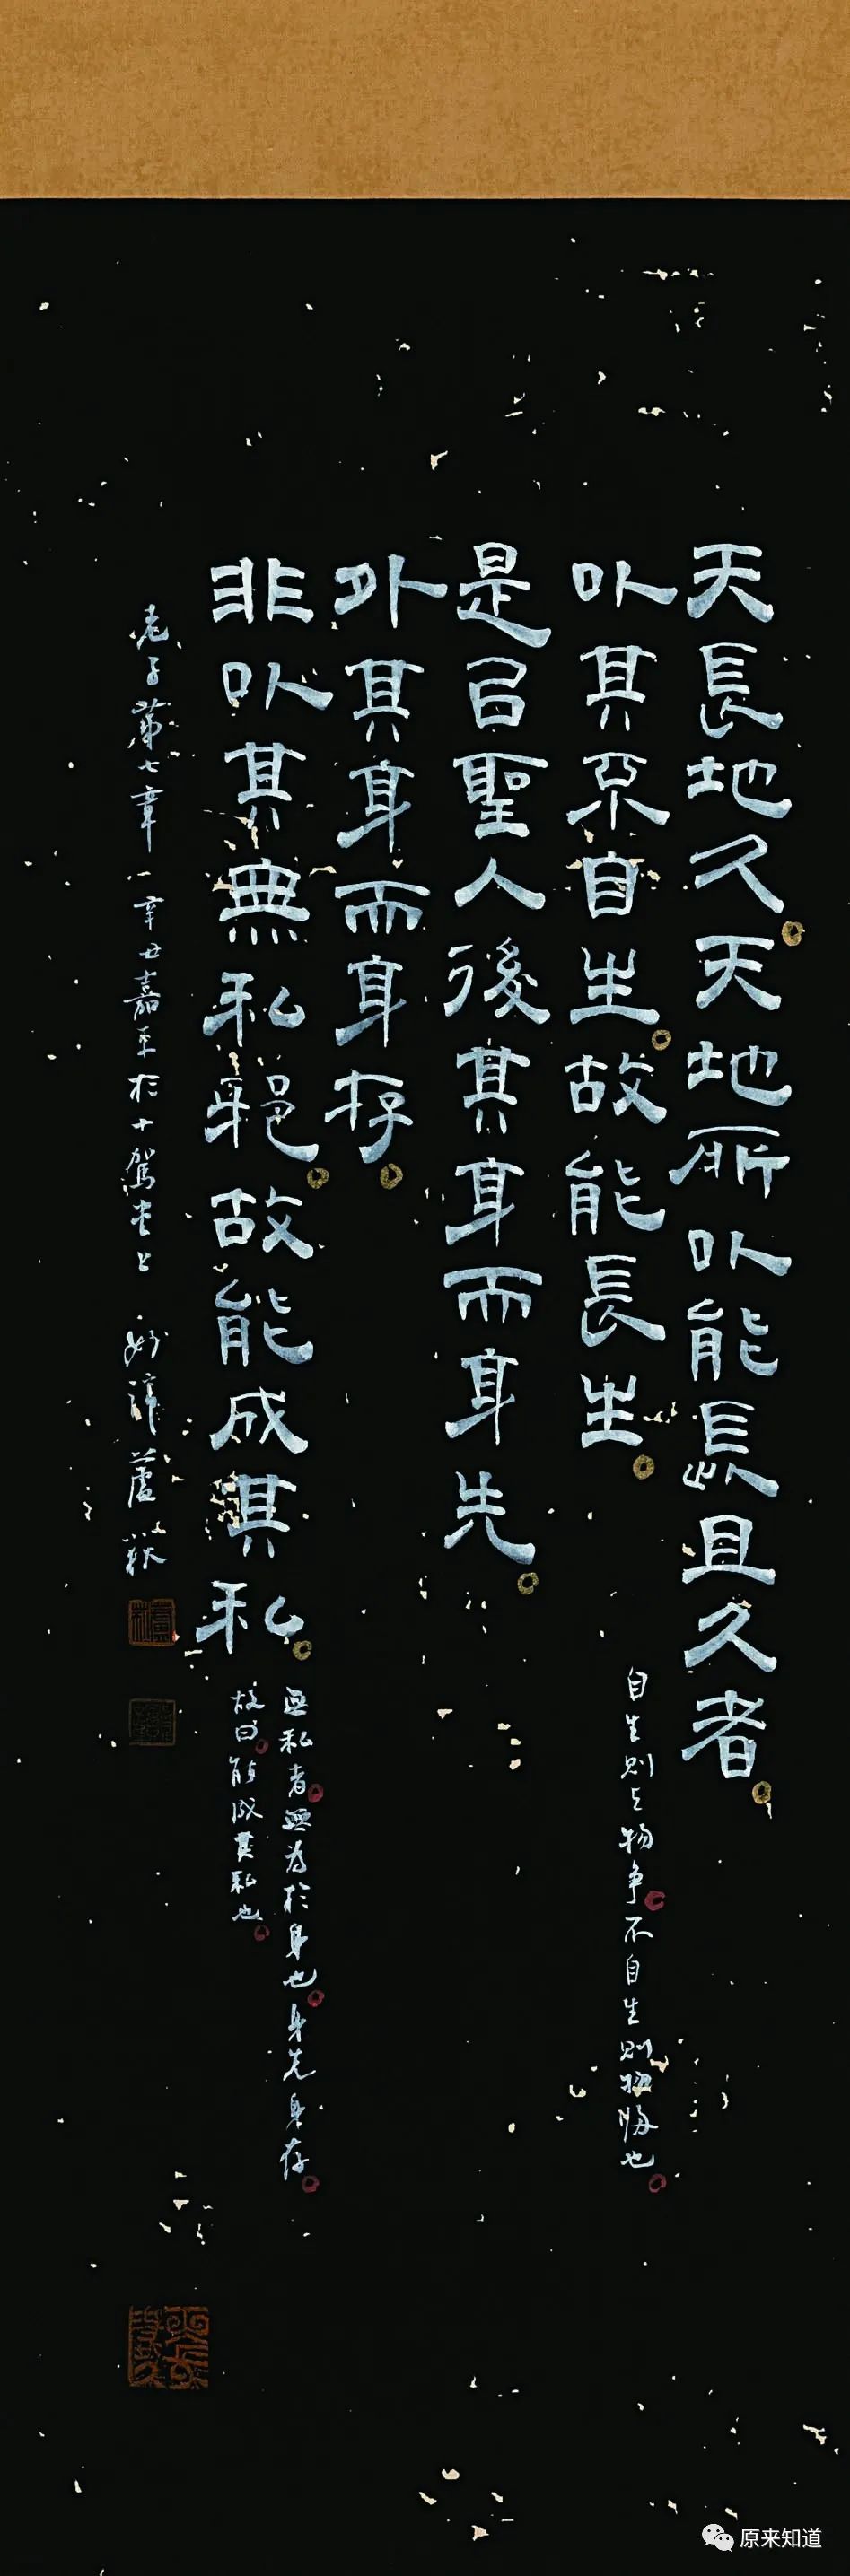 天長地久天地所以能長且久者
以其不自生故能長生
自生則与物争不自生則物歸也
是以聖人後其身而身先
外其身而身存
非以其無私邪故能成其私
無私者無為於身也身先身存
故曰能成其私也
老子第七章 辛丑嘉平於十駕堂上
原来知道